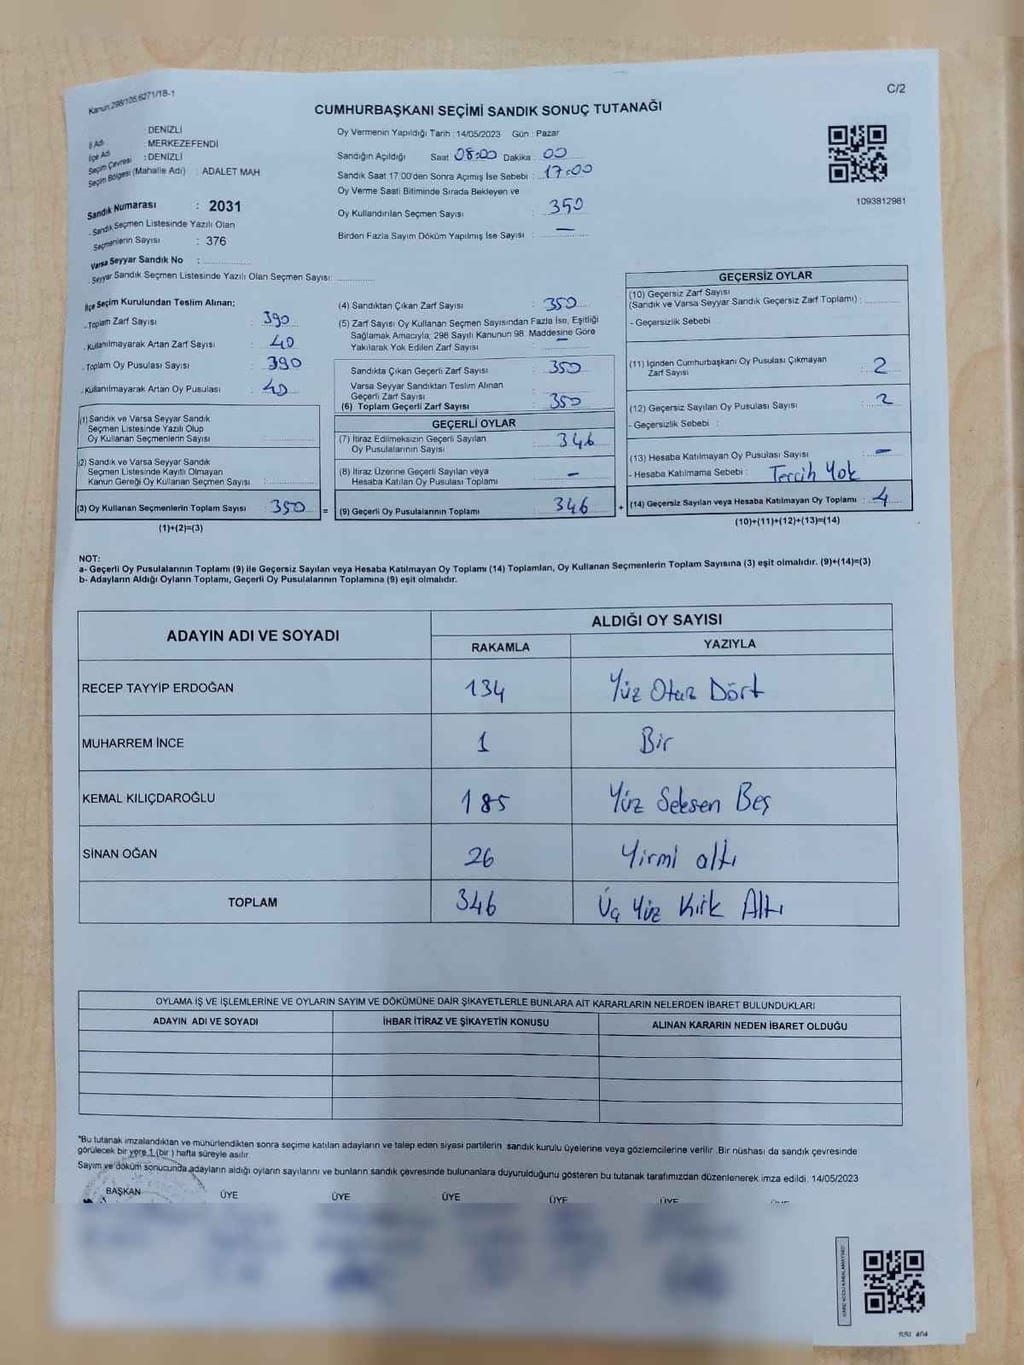 Kanun:298/105,6271/18-1
C/2
CUMHURBAŞKANI SEÇİMİ SANDIK SONUÇ TUTANAĞI
İl Adı : DENİZLİ
İlçe Adı : MERKEZEFENDİ
Seçim Çevresi : DENİZLİ
Seçim Bölgesi (Mahalle Adı) : ADALET MAH.
Sandık Numarası : 2031
- Sandık Seçmen Listesinde Yazılı Olan
Seçmenlerin Sayısı : 376
Varsa Seyyar Sandık No :
- Seyyar Sandık Seçmen Listesinde Yazılı Olan Seçmen Sayısı:
Oy Vermenin Yapıldığı Tarih :14/05/2023 Gün : Pazar
Sandığın Açıldığı Saat 08:00 Dakika : 00
Sandık Saat 17:00'den Sonra Açımış İse Sebebi : 17:00
Oy Verme Saati Bitiminde Sırada Bekleyen ve
Oy Kullandırılan Seçmen Sayısı : 350
Birden Fazla Sayım Döküm Yapılmış İse Sayısı : —
1093812981
İlçe Seçim Kurulundan Teslim Alınan;
- Toplam Zarf Sayısı : 390
- Kullanılmayarak Artan Zarf Sayısı : 40
- Toplam Oy Pusulası Sayısı : 390
- Kullanılmayarak Artan Oy Pusulası : 40
(1) Sandık ve Varsa Seyyar Sandık
Seçmen Listesinde Yazılı Olup
Oy Kullanan Seçmenlerin Sayısı :
(2) Sandık ve Varsa Seyyar Sandık
Seçmen Listesinde Kayıtlı Olmayan
Kanun Gereği Oy Kullanan Seçmen Sayısı :
(3) Oy Kullanan Seçmenlerin Toplam Sayısı : 350 =
(1)+(2)=(3)
(4) Sandıktan Çıkan Zarf Sayısı : 350
(5) Zarf Sayısı Oy Kullanan Seçmen Sayısından Fazla İse, Eşitliği
Sağlamak Amacıyla, 298 Sayılı Kanunun 98. Maddesine Göre
Yakılarak Yok Edilen Zarf Sayısı : —
Sandıkta Çıkan Geçerli Zarf Sayısı : 350
Varsa Seyyar Sandıktan Teslim Alınan
Geçerli Zarf Sayısı :
(6) Toplam Geçerli Zarf Sayısı : 350
GEÇERLİ OYLAR
(7) İtiraz Edilmeksizin Geçerli Sayılan
Oy Pusulalarının Sayısı : 346
(8) İtiraz Üzerine Geçerli Sayılan veya
Hesaba Katılan Oy Pusulası Toplamı : —
(9) Geçerli Oy Pusulalarının Toplamı : 346 +
GEÇERSİZ OYLAR
(10) Geçersiz Zarf Sayısı
(Sandık ve Varsa Seyyar Sandık Geçersiz Zarf Toplamı) :
- Geçersizlik Sebebi :
(11) İçinden Cumhurbaşkanı Oy Pusulası Çıkmayan
Zarf Sayısı : 2
(12) Geçersiz Sayılan Oy Pusulası Sayısı : 2
- Geçersizlik Sebebi :
(13) Hesaba Katılmayan Oy Pusulası Sayısı : —
- Hesaba Katılmama Sebebi : Tercih Yok
(14) Geçersiz Sayılan veya Hesaba Katılmayan Oy Toplamı : 4
(10)+(11)+(12)+(13)=(14)
NOT:
a- Geçerli Oy Pusulalarının Toplamı (9) ile Geçersiz Sayılan veya Hesaba Katılmayan Oy Toplamı (14) Toplamları, Oy Kullanan Seçmenlerin Toplam Sayısına (3) eşit olmalıdır. (9)+(14)=(3)
b- Adayların Aldığı Oyların Toplamı, Geçerli Oy Pusulalarının Toplamına (9) eşit olmalıdır.
ADAYIN ADI VE SOYADI ALDIĞI OY SAYISI
RAKAMLA YAZIYLA
RECEP TAYYİP ERDOĞAN 134 Yüz Otuz Dört
MUHARREM İNCE 1 Bir
KEMAL KILIÇDAROĞLU 185 Yüz Seksen Beş
SİNAN OĞAN 26 Yirmi altı
TOPLAM 346 Üç Yüz Kırk Altı
OYLAMA İŞ VE İŞLEMLERİNE VE OYLARIN SAYIM VE DÖKÜMÜNE DAİR ŞİKAYETLERLE BUNLARA AİT KARARLARIN NELERDEN İBARET BULUNDUKLARI
ADAYIN ADI VE SOYADI İHBAR İTİRAZ VE ŞİKAYETİN KONUSU ALINAN KARARIN NEDEN İBARET OLDUĞU
*Bu tutanak imzalandıktan ve mühürlendikten sonra seçime katılan adayların ve talep eden siyasi partilerin sandık kurulu üyelerine veya gözlemcilerine verilir .Bir nüshası da sandık çevresinde
görülecek bir yere 1 (bir ) hafta süreyle asılır.
Sayım ve döküm sonucunda adayların aldığı oyların sayılarını ve bunların sandık çevresinde bulunanlara duyurulduğunu gösteren bu tutanak tarafımızdan düzenlenerek imza edildi. 14/05/2023
BAŞKAN ÜYE ÜYE ÜYE ÜYE ÜYE